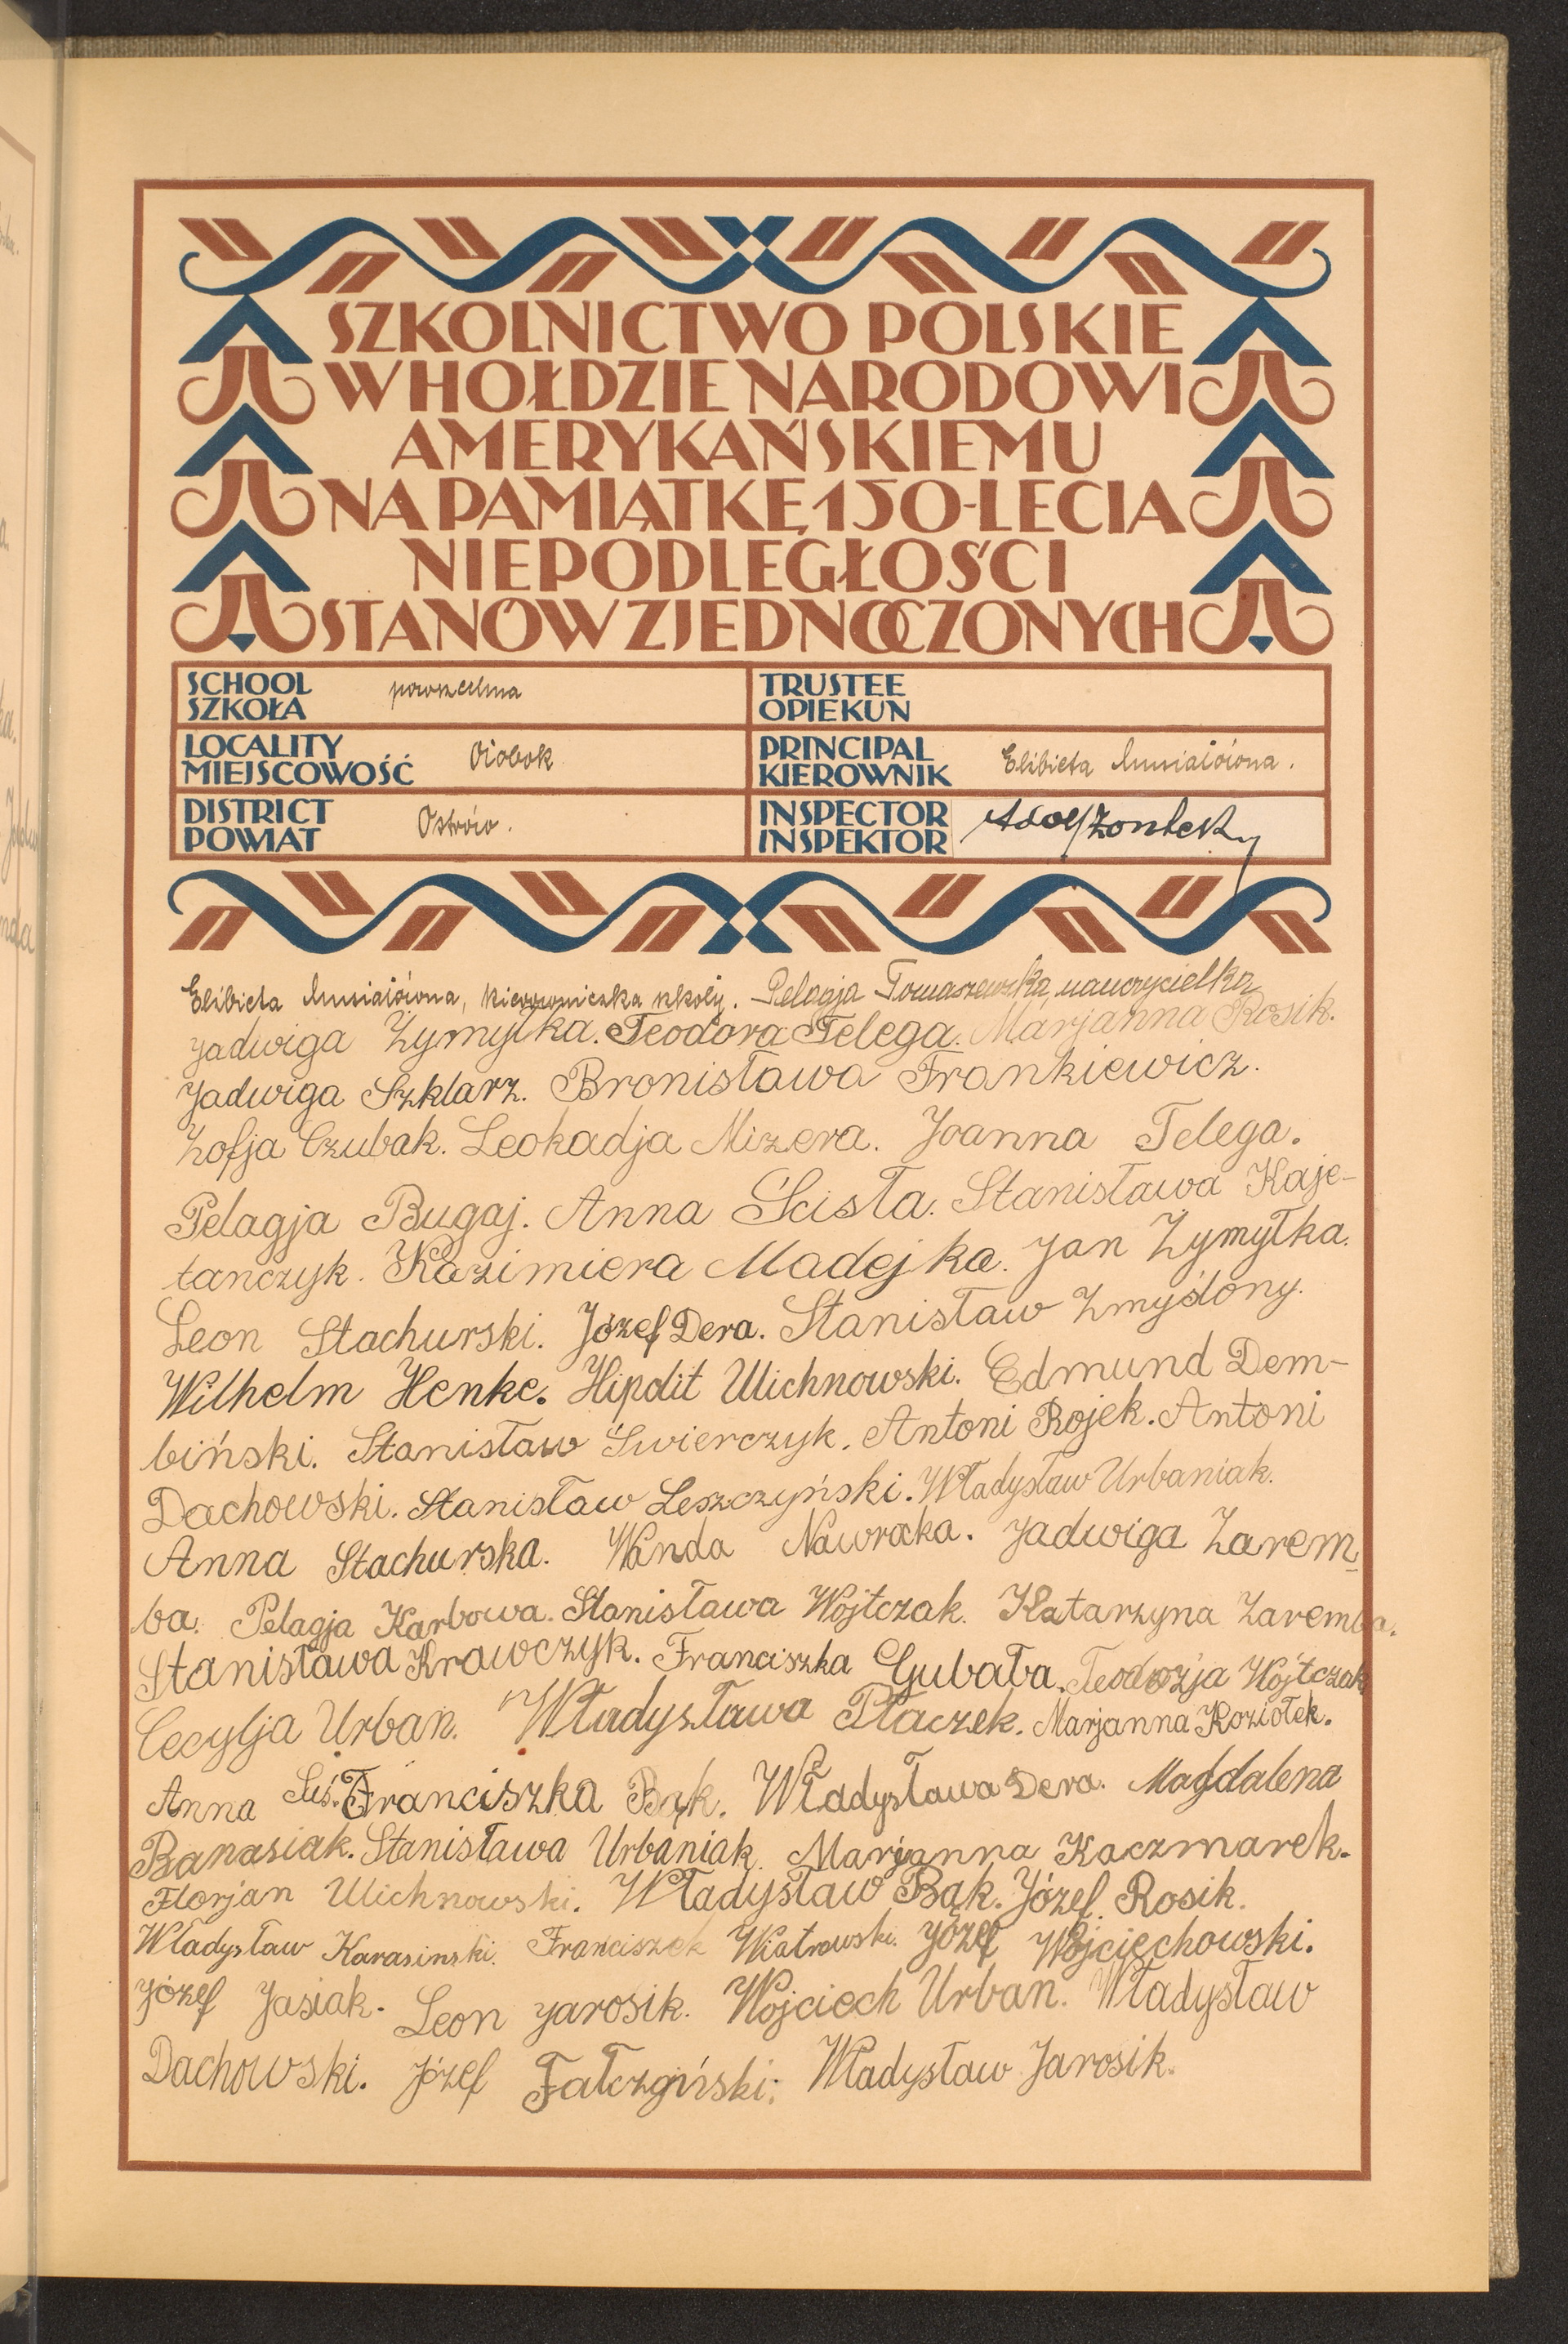 SZKOLNICTWO POLSKIE
W HOŁDZIE NARODOWI
AMERYKAŃSKIEMU
NA PAMIĄTKĘ 150-LECIA
NIEPODLEGŁOŚCI
STANÓW ZJEDNOCZONYCH
SCHOOL
SZKOŁA
powszechna
TRUSTEE
OPIEKUN
LOCALITY
MIEJSCOWOŚĆ
Ołobok
PRINCIPAL
KIEROWNIK
Elżbieta Musiałówna.
DISTRICT
POWIAT
Ostrów.
INSPECTOR
INSPEKTOR
Adolf
Elżbieta Musiałówna, kierowniczka szkoły. Pelagja Tomaszewska nauczycielka
Jadwiga Żymyłka. Teodora Telega. Marjanna Rosik.
Jadwiga Szklarz. Bronisława Frankiewicz.
Zofja Czubak. Leokadja Mizera. Joanna Telega.
Pelagja Bugaj. Anna Ścisła. Stanisława Kaje-
tańczyk. Kazimiera Madejka. Jan Żymyłka.
Leon Stachurski. Józef Dera. Stanisław Zmyślony.
Wilhelm Henke. Hipolit Ulichnowski. Edmund Dem-
biński. Stanisław Świerczyk. Antoni Rojek. Antoni
Dachowski. Stanisław Leszczyński. Władysław Urbaniak.
Anna Stachurska. Wanda Nawrocka. Jadwiga Zarem-
ba. Pelagja Karbowa. Stanisława Wójtczak. Katarzyna Zaremba.
Stanisława Krawczyk. Franciszka Gubała. Teodozja Wójtczak
Cecylja Urban. Władysława Płaczek. Marjanna Koziołek.
Anna Suś. Franciszka Bąk. Władysława Dera. Magdalena
Banasiak. Stanisława Urbaniak. Marjanna Kaczmarek.
Florjan Ulichnowski. Władysław Bąk. Józef Rosik.
Władysław Karasinski. Franciszek Wiatrowski. Józef Wojciechowski.
Józef Jasiak. Leon Jarosik. Wojciech Urban. Władysław
Dachowski. Józef Fałczyński. Władysław Jarosik.